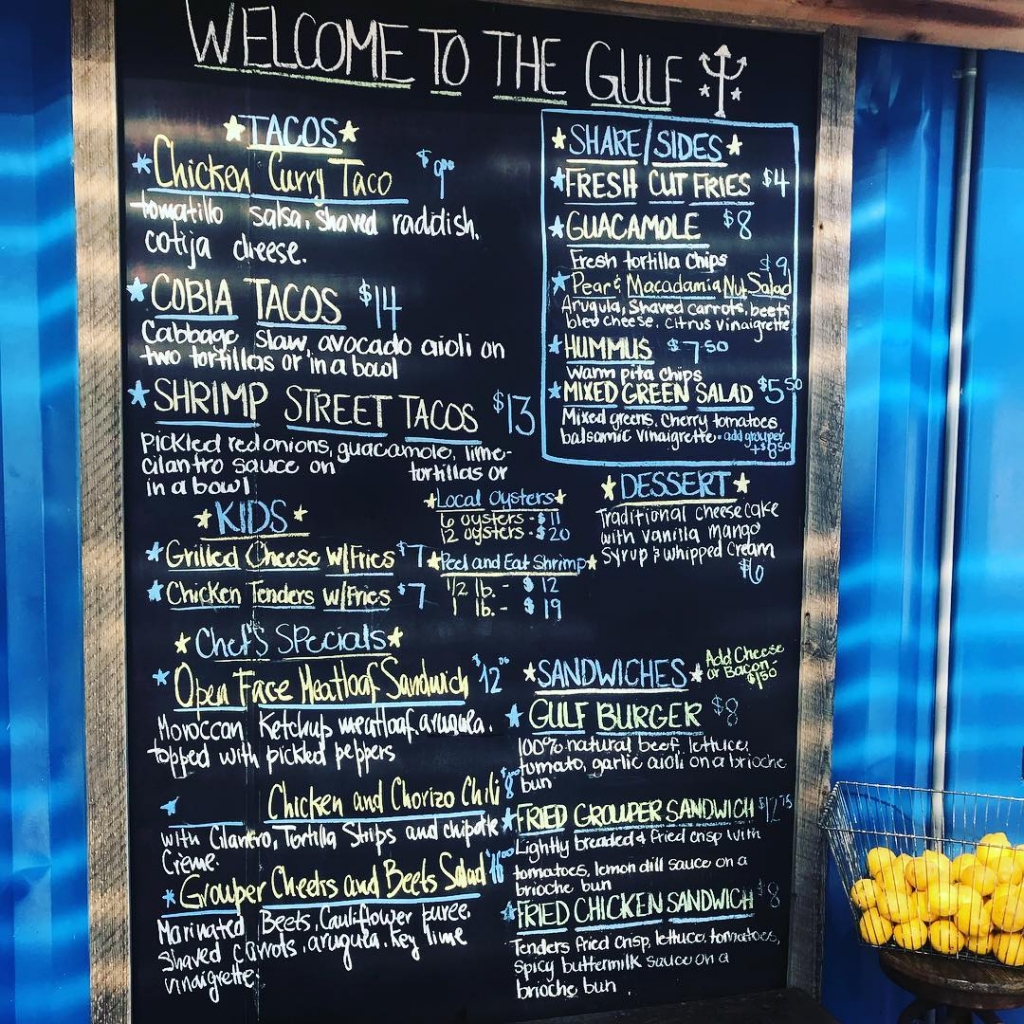 WELCOME TO THE GULF
TACOS
Chicken Curry Taco $9.00
tomatillo salsa, shaved raddish,
cotija cheese.
COBIA TACOS $14
Cabbage slaw, avocado aioli on
two tortillas or in a bowl
SHRIMP STREET TACOS $13
pickled red onions, guacamole, lime-
cilantro sauce on tortillas or
in a bowl
SHARE/SIDES
FRESH CUT FRIES $4
GUACAMOLE $8
Fresh tortilla chips
Pear & Macadamia Nut Salad $9
Arugula, Shaved carrots, beets
bleu cheese, citrus vinaigrette
HUMMUS $7.50
warm pita chips
MIXED GREEN SALAD $5.50
Mixed greens, cherry tomatoes
balsamic vinaigrette - add grouper
+$8.50
KIDS
Grilled Cheese w/Fries $7
Chicken Tenders w/Fries $7
Local Oysters
6 oysters - $11
12 oysters - $20
Peel and Eat Shrimp
1/2 lb. - $12
1 lb. - $19
DESSERT
Traditional cheesecake
with vanilla mango
syrup & whipped cream
$6
Chef's Specials
Open Face Meatloaf Sandwich $12.00
Moroccan Ketchup meatloaf, arugula,
topped with pickled peppers
Chicken and Chorizo Chili $8
with Cilantro, Tortilla Strips and chipotle
Creme.
Grouper Cheeks and Beets Salad $16.00
Marinated Beets, Cauliflower puree,
shaved carrots, arugula, key lime
vinaigrette.
SANDWICHES
Add Cheese
or Bacon
$1.50
GULF BURGER $8
100% natural beef, lettuce,
tomato, garlic aioli on a brioche
bun
FRIED GROUPER SANDWICH $12.75
Lightly breaded & fried crisp with
tomatoes, lemon dill sauce on a
brioche bun
FRIED CHICKEN SANDWICH $8
Tenders fried crisp, lettuce, tomatoes,
spicy buttermilk sauce on a
brioche bun